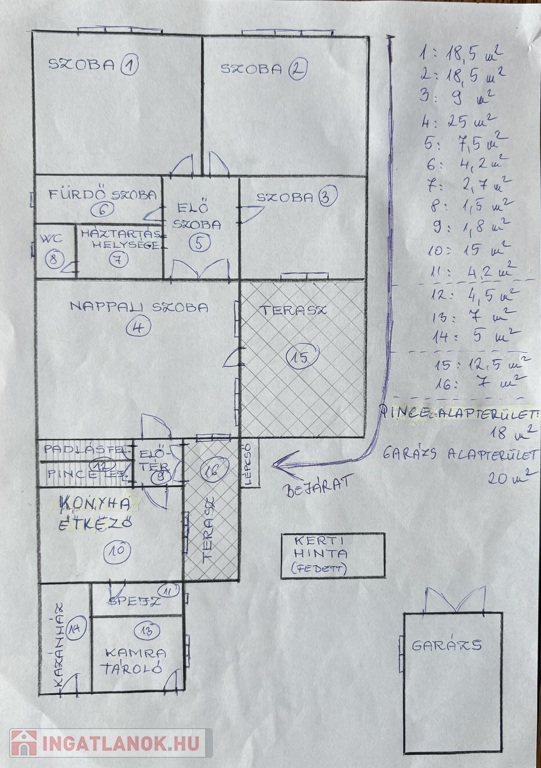 SZOBA 1
SZOBA 2
FÜRDŐ SZOBA
6
ELŐ
SZOBA
5
SZOBA 3
WC
8
HÁZTARTÁS
HELYSÉGE
7
NAPPALI SZOBA
4
TERASZ
15
PADLÁSFEL
12
PINCE LEJ
ELŐ-
TÉR
9
16
TERASZ
LÉPCSŐ
BEJÁRAT
KONYHA
ÉTKEZŐ
10
KERTI
HINTA
(FEDETT)
11
SPEJZ
KAZÁNHÁZ
14
13
KAMRA
TÁROLÓ
GARÁZS
1: 18,5 m²
2: 18,5 m²
3: 9 m²
4: 25 m²
5: 7,5 m²
6: 4,2 m²
7: 2,7 m²
8: 1,5 m²
9: 1,8 m²
10: 15 m²
11: 4,2 m²
12: 4,5 m²
13: 7 m²
14: 5 m²
15: 12,5 m²
16: 7 m²
PINCE ALAPTERÜLET:
18 m²
GARÁZS ALAPTERÜLET
20 m²
INGATLANOK.HU